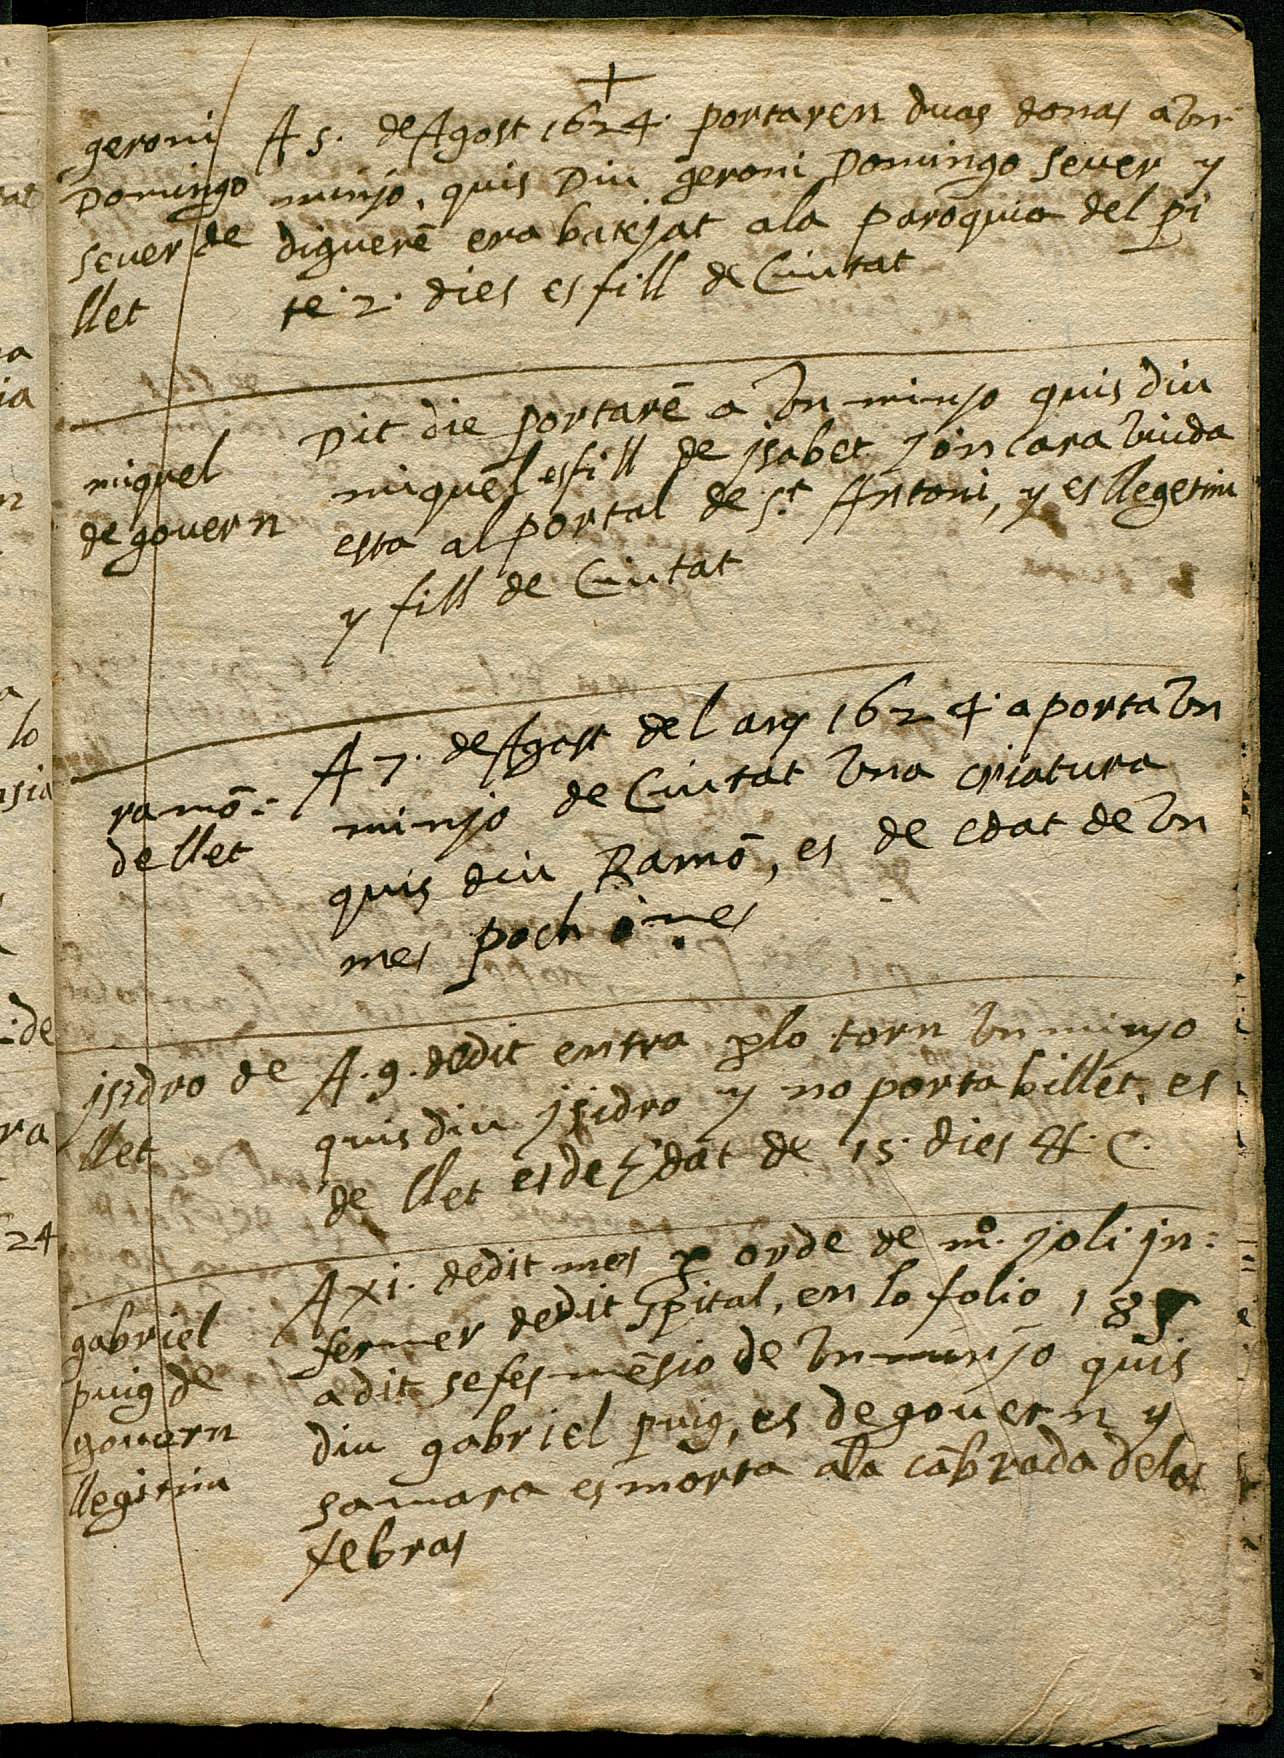 +
geroni
Domingo
seuer de
llet
A 5. de Agost 1624. portaren duas donas a un
minyo, quis Diu geroni Domingo seuer y
diguerē era batejat a la paroquia del pi
te .2. dies es fill de Ciutat
miquel
de gouern
Dit die portarē a un minyo quis diu
miquel es fill de ysabet
esta al portal de St Antoni, y es llegetim
y fill de Ciutat
ramō
de llet
A 7. de Agost del any 1624. a porta un
minyo de Ciutat una criatura
quis diu Ramō, es de edat de un
mes poch o mes
ysidro de
llet
A .9. de dit entra p lo torn un minyo
quis diu ysidro y no porta billet. es
de llet es de edat de 15. dies H. C.
gabriel
puig de
gouern
llegitim
A xi. de dit mes p orde de mº. joli in=
fermer de dit spital, en lo folio 185
a dit se fes mēsio de un minyo quis
diu gabriel puig, es de gouern y
sa mara es morta a la cābrada de las
febras